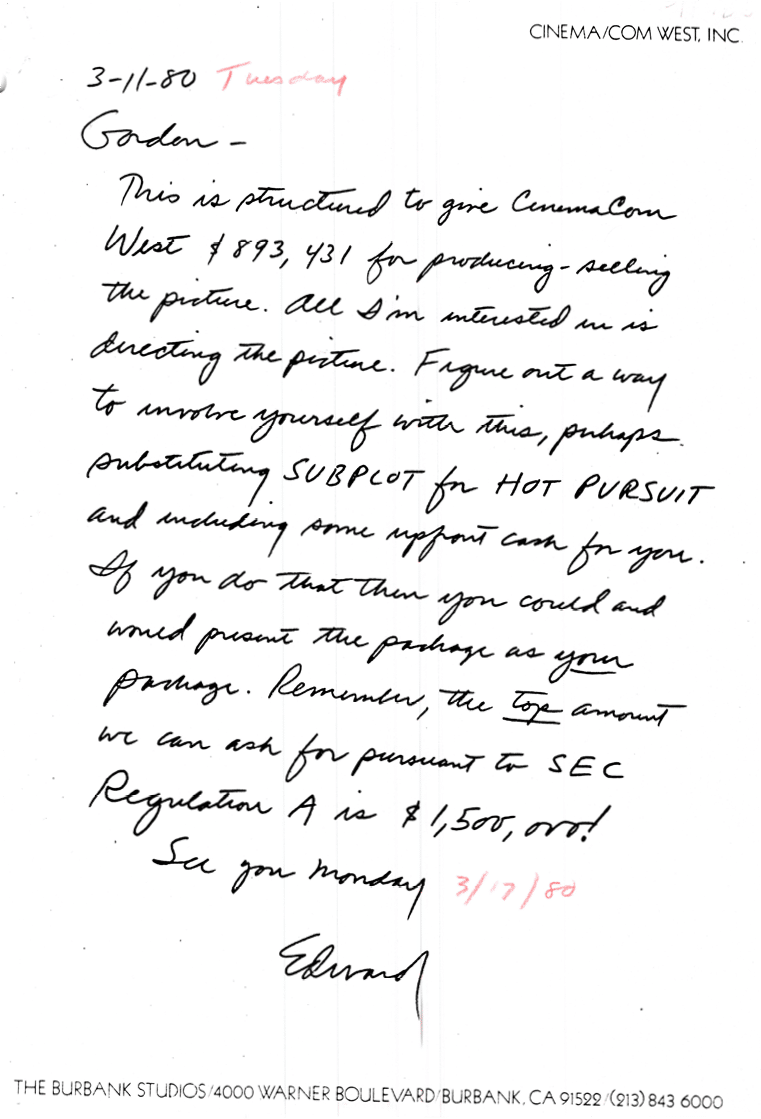 CINEMA/COM WEST, INC.
3-11-80 Tuesday
Gordon -
This is structured to give CinemaCom
West $893,431 for producing-selling
the picture. All I'm interested in is
directing the picture. Figure out a way
to involve yourself with this, perhaps
substituting SUBPLOT for HOT PURSUIT
and including some upfront cash for you.
If you do that then you could and
would present the package as your
package. Remember, the top amount
we can ask for pursuant to SEC
Regulation A is $1,500,000!
See you Monday 3/17/80
Edward
THE BURBANK STUDIOS/4000 WARNER BOULEVARD/BURBANK, CA 91522/(213) 843 6000